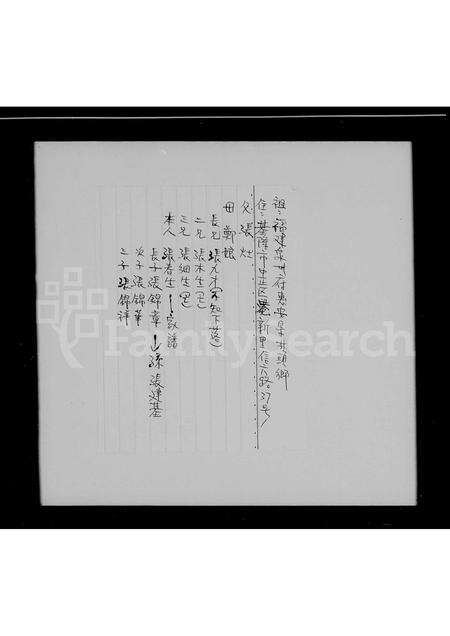 祖:福建泉州府惠安县井头鄉
住:基隆市中正区新里信六路37号
父 張灶
母 鄭
長兄 張九木(不知下落)
二兄 張木生(亡)
三兄 張細生(亡)
本人 張春生—家譜
長子 張錦章→孫 張建基
次子 張錦華
三子 張錦祥
FamilySearch